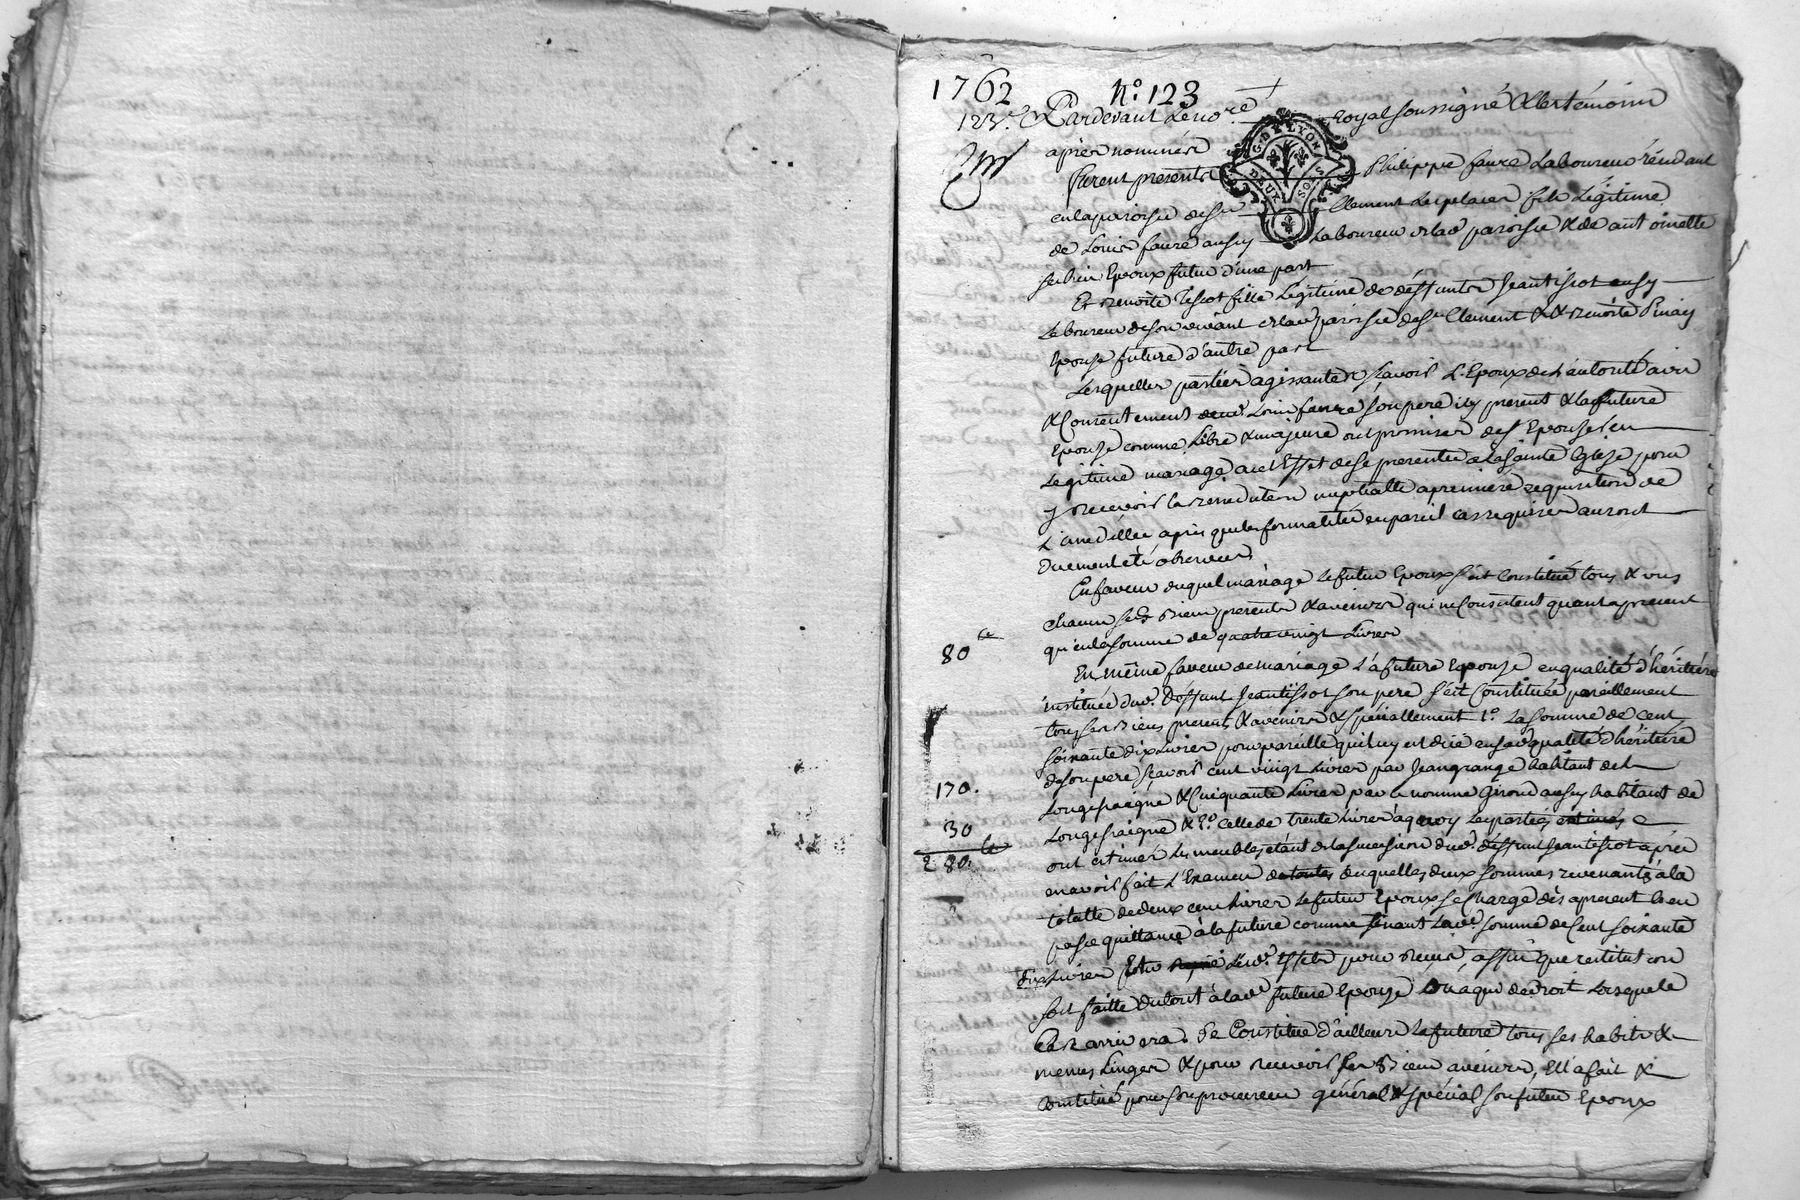 1762 N.º 123
123.e Pardevant Le no.re Royal soussigné & les témoins
après nommés
G. DE LYON
DEUX SOLS
furent présents Philippe faure Laboureur résidant
en la paroisse de St Clement Les places fils Légitime
de Louis faure aussy Laboureur de lad. paroisse & de antoinette
Epoux futur d'une part
Et Benoite Tissot fille Légitime de deffunts Jean tissot aussy
Laboureur de son vivant de lad. paroisse de St Clement & de Benoite Pinay
Epouse future d'autre part
Lesquelles parties agissantes sçavoir L'Epoux de L'autorité avis
& Consentement dud. Louis faure son pere icy present & la future
Epouse comme Libre & majeure ont promis de s'Epouser en
Legitime mariage a cet Effet de se presenter a La sainte Eglise pour
y recevoir la Benediction nuptialle a premiere requisition de
L'une d'Elles après que les formalités en pareil cas requises auront
duement été observées
En faveur duquel mariage Le futur Epoux s'est Constitué tous & uns
chacun ses Biens presents & avenirs qui ne Consistent quant a present
80 # qu'en la somme de quatre vingt Livres
En même faveur de mariage La future Epouse en qualité d'héritiere
instituée dud. deffunt Jean tissot son pere s'est Constituée pareillement
tous ses Biens presents & avenirs & spécialement 1.º La somme de cent
soixante dix Livres pour pareille qui luy est düe en sad. qualité d'héritiere
170. de son pere sçavoir cent vingt Livres par Jean grange habitant de
Longessaigne & Cinquante Livres par le nommé Giroud aussy habitant de
30 Longessaigne & 2.º Celle de trente Livres à quoy Les parties estimés
280. # ont estimés Les meubles etant de la succession dud. deffunt Jean tissot après
en avoir fait L'Examen de toutes desquelles deux sommes revenantes à la
totalle de deux cent Livres Le futur Epoux se Charge dès apresent & en
passe quittance à la future comme tenant Lad. somme de Cent soixante
dix Livres Lesd. Effets pour Reçus, affin que restitution
soit faitte du tout à lad. future Epouse ou a qui de droit Lorsque le
Cas arrivera. Se Constitue d'ailleurs La future tous ses habits &
menus Linges & pour recevoir ses Biens avenirs, Ell'a fait &
Constitué pour son procureur général & spécial son futur Epoux